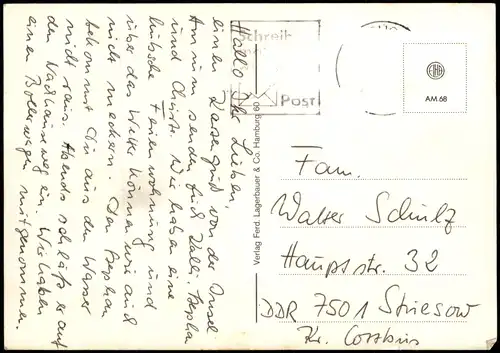 Hallo Ihr Lieben,
einen Riesengruß von der Insel
Amrum senden Euch Kalli, Sophia
und Christa. Wir haben eine
hübsche Ferienwohnung und
über das Wetter können wir auch
nicht meckern. Den Stephan
bekommst Du aus dem Wasser
nicht raus. Abends schläft er auf
dem Nachhauseweg ein. Wir haben
einen Bollerwagen mitgenommen.
Schreib
mal
POST
Verlag Ferd. Lagerbauer & Co. Hamburg 60
AM 68
Fam.
Walter Schulz
Hauptstr. 32
DDR 7501 Striesow
Kr. Cottbus